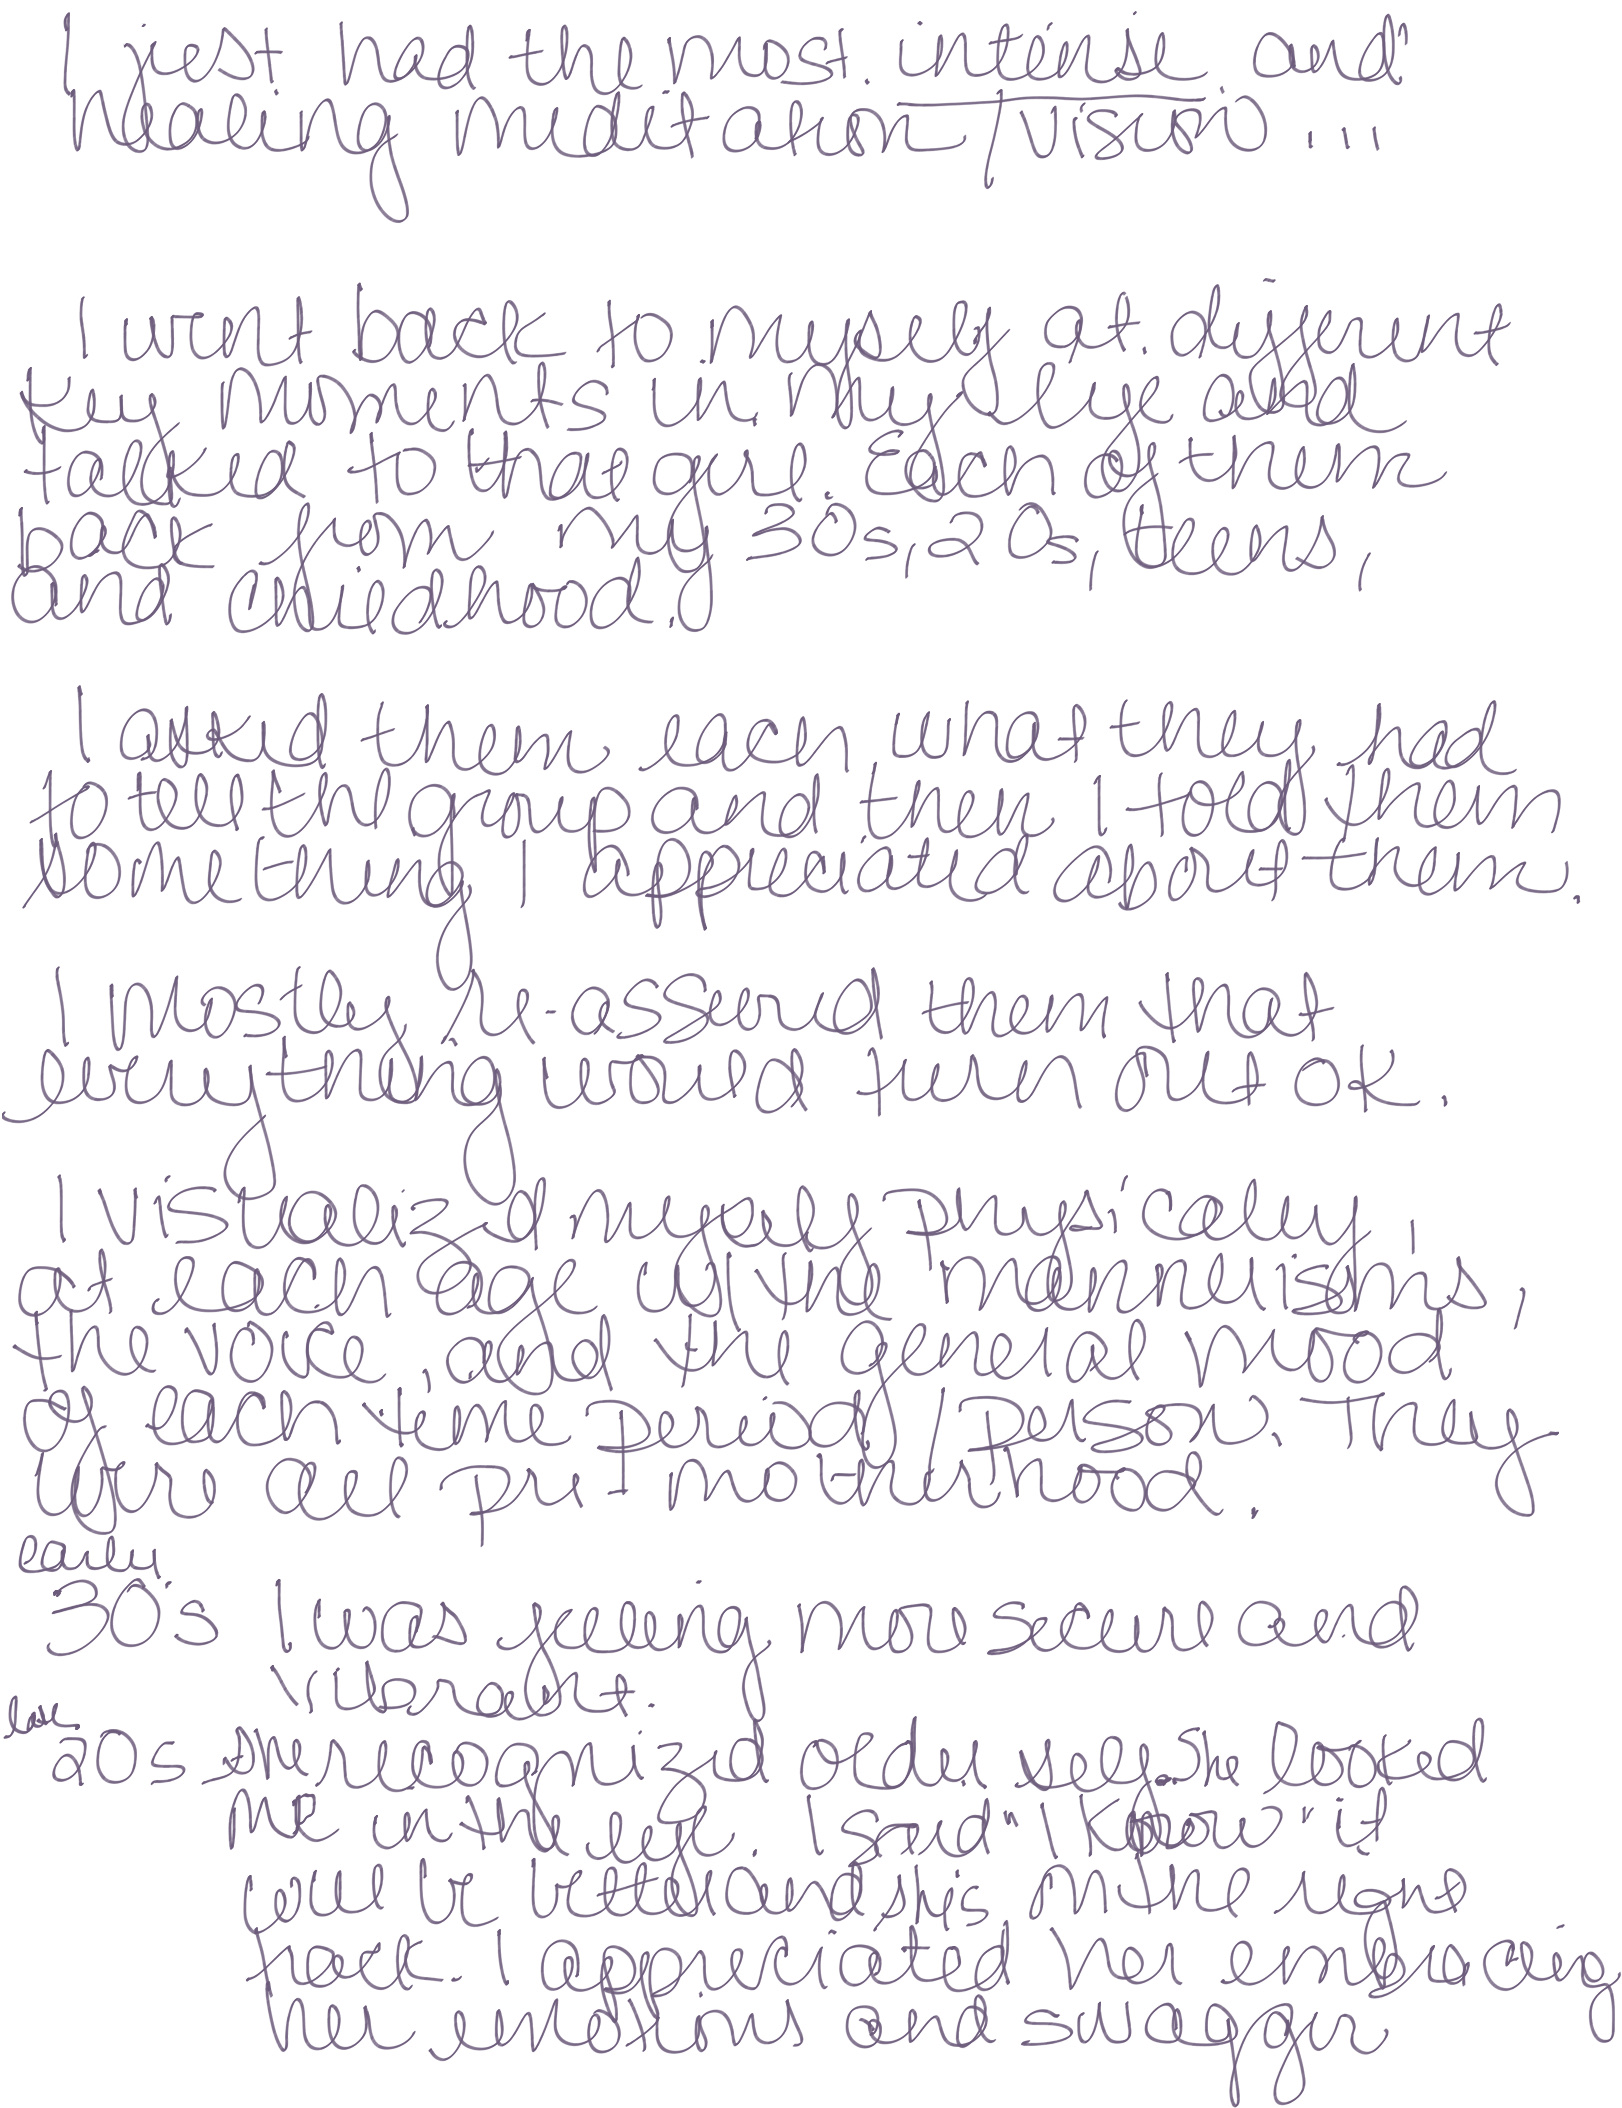 I just had the most intense and
healing meditation/vision...
I went back to myself at different
key moments in my life and
talked to that girl. Each of them
back from my 30s, 20s, teens,
and childhood.
I asked them each what they had
to tell the group and then I told them
something I appreciated about them.
I mostly re-assured them that
everything would turn out ok.
I visualized myself physically,
at each age w/ the mannerisms,
the voice, and the general mood
of each time period/person. They
were all pre-motherhood.
early
30's I was feeling more secure and
vibrant.
late
20s she recognized older self. She looked
me in the eye. I said "I know" it
will be better and she's on the right
track. I appreciated her embracing
her emotions and swagger